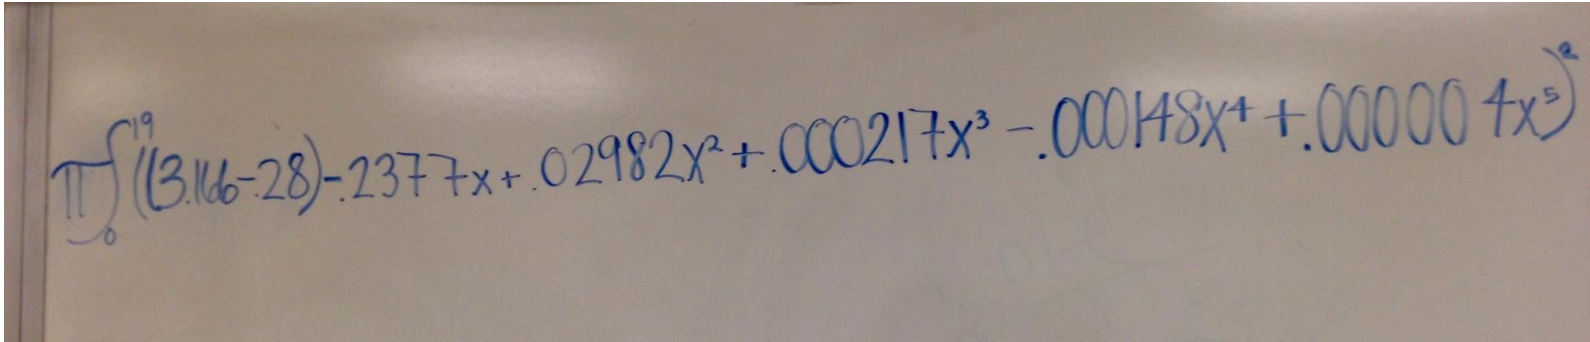 π∫₀¹⁹((3.166-.28)-.2377x+.02982x²+.000217x³-.000148x⁴+.000004x⁵)²